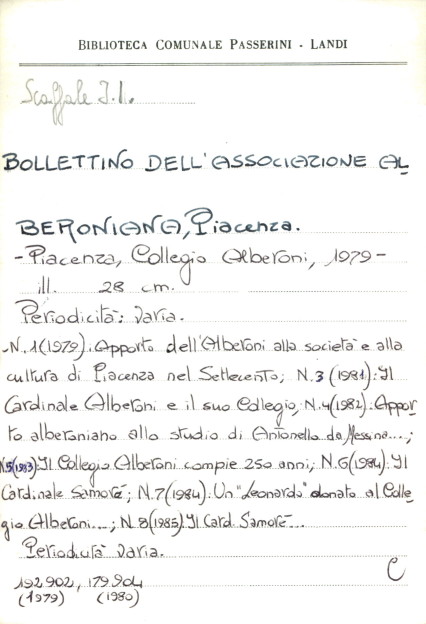 BIBLIOTECA COMUNALE PASSERINI - LANDI
Scaffale J.1.
BOLLETTINO DELL'ASSOCIAZIONE AL
BERONIANA, Piacenza.
- Piacenza, Collegio Alberoni, 1979 -
ill. 28 cm.
Periodicità: varia.
- N. 1(1979): Apporto dell'Alberoni alla società e alla
cultura di Piacenza nel Settecento; N. 3 (1981): Il
Cardinale Alberoni e il suo Collegio; N. 4(1982): Appor
to alberoniano allo studio di Antonello da Messina...;
N. 5(1983): Il Collegio Alberoni compie 250 anni; N. 6(1984): Il
Cardinale Samorè; N. 7(1984): Un "Leonardo" donato al Colle
gio Alberoni...; N. 8(1985): Il Card. Samorè...
Periodicità varia.
192.902, 179.904
(1979) (1980)
C